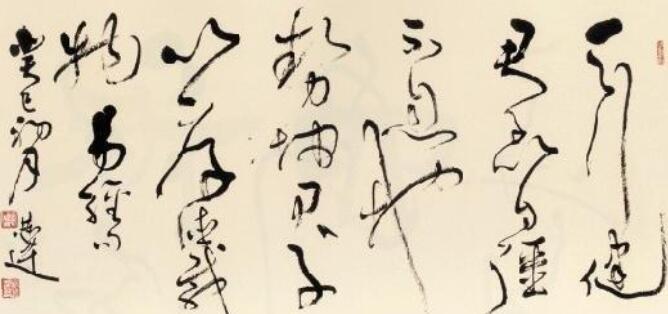 天行健
君子以自彊
不息地
勢坤君子
以厚德載
物 易經句
癸巳初月